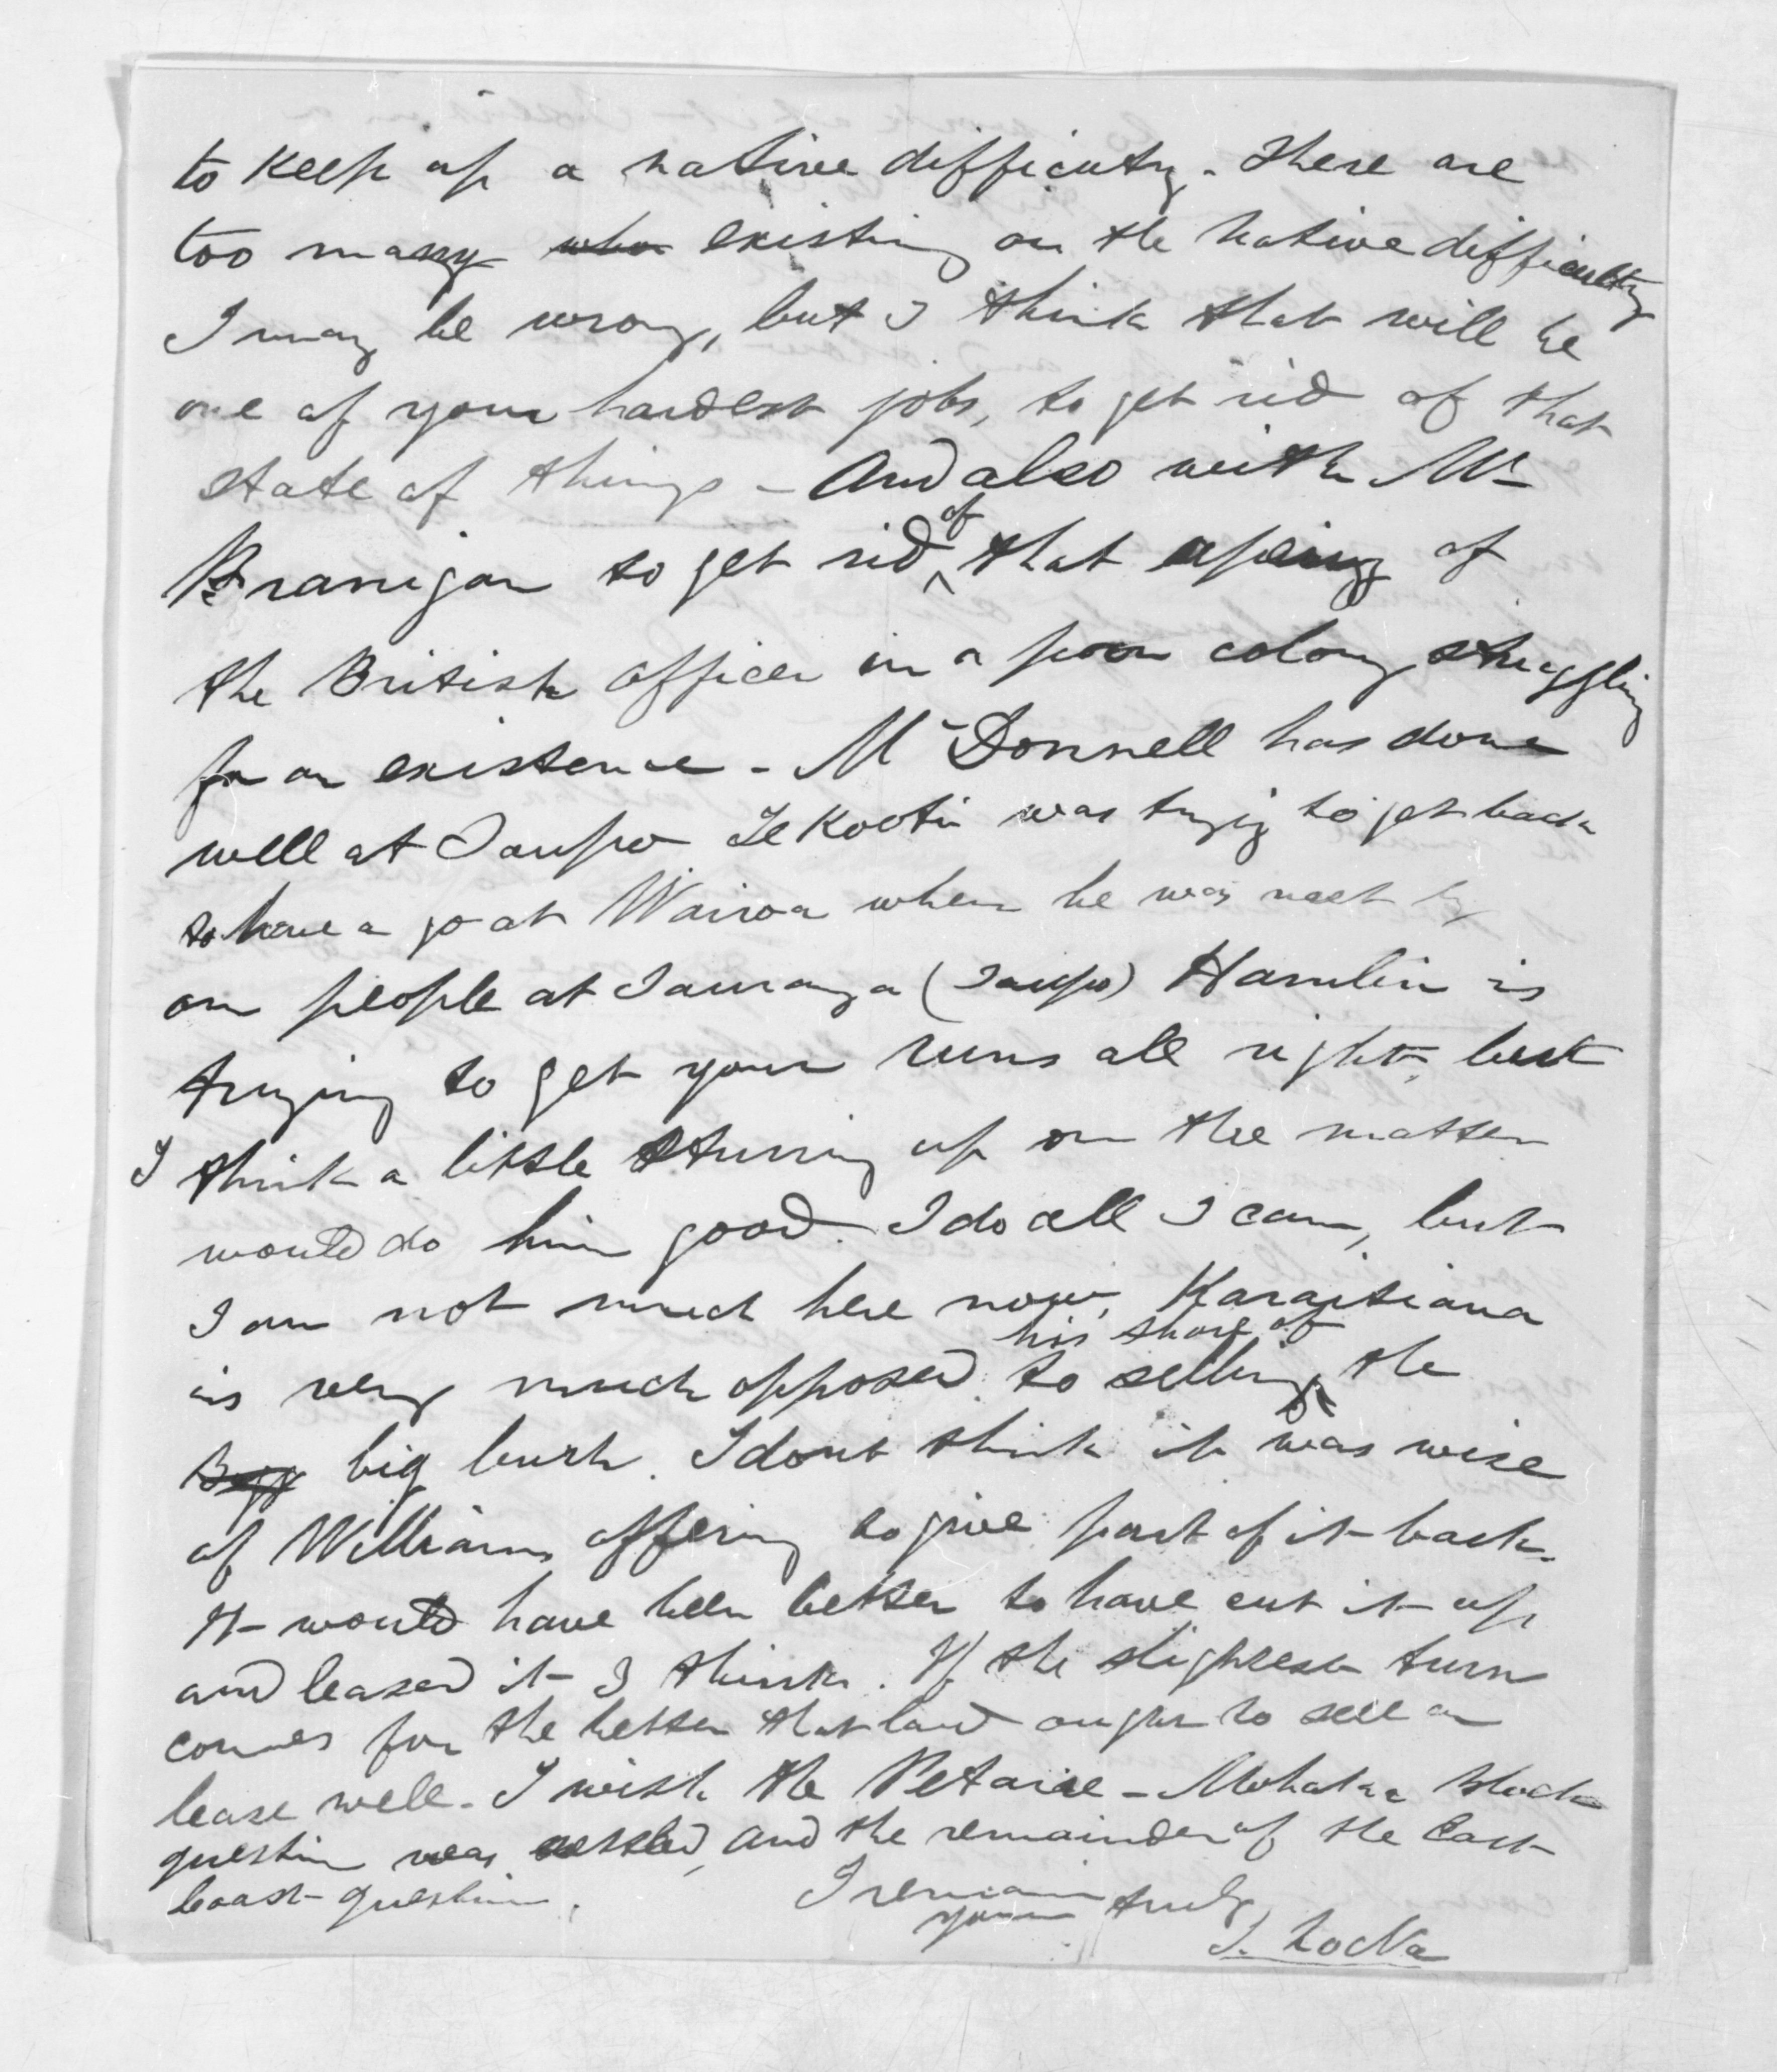 to keep up a native difficulty. There are
too many who existing on the native difficulty
I may be wrong, but I think that will be
one of your hardest jobs, to get rid of that
state of things - And also with Mr
Branigan to get rid of that apeing of
the British officer in a poor colony struggling
for an existence - McDonnell has done
well at Taupo Te Kooti was trying to get back
to have a go at Wairoa when he was met by
our people at Tauranga (Taupo) Hamlin is
trying to get your runs all right, but
I think a little stirring up on the matter
would do him good. I do all I can, but
I am not much here now, Karaitiana
is very much opposed to selling his share of the
big bush. I dont think it was wise
of Williams offering to give part of it back.
It would have been better to have cut it up
and leased it I think. If the slightest turn
comes for the better that land ought to sell or
lease well. I wish the Petane - Mohaka Block
question was settled, and the remainder of the East
Coast question.
I remain
yours truly
S. Locke